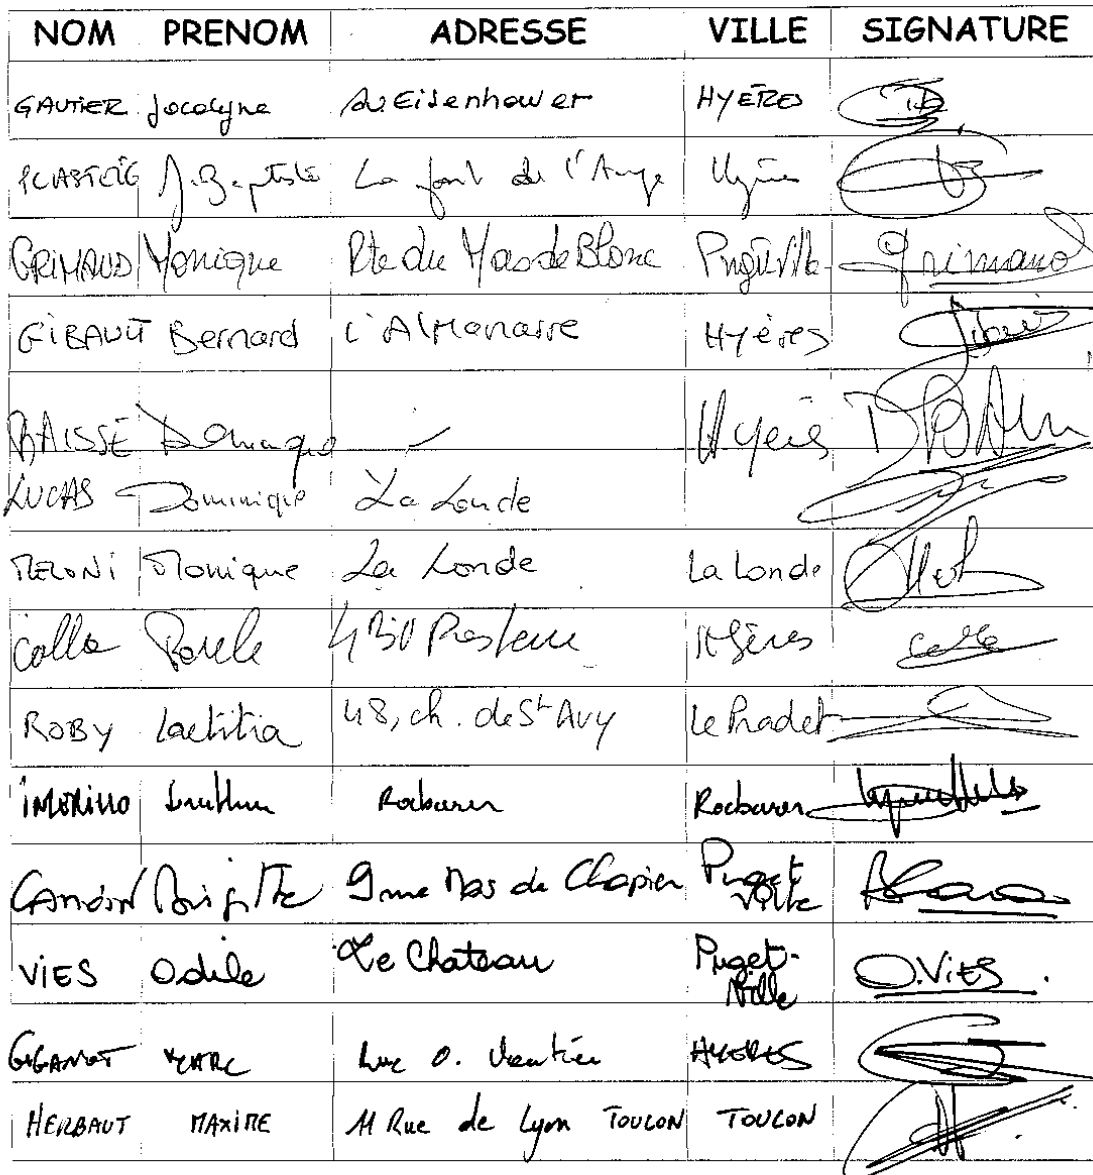 NOM PRENOM ADRESSE VILLE SIGNATURE
GAUTIER Jocelyne Av Eisenhower HYERES
J. Baptiste La font de l'Ange Hyères
GRIMAUD Monique Rte du Mas de Blanc Grimaud
GIBAULT Bernard L'Almanarre Hyères
BAISSE Dominique Hyères
LUCAS Dominique La Londe
MELONI Monique La Londe La Londe
Colla Paule Hyères Colla
ROBY Laetitia 48, ch. de St Avy Le Pradet
Rocbaron Rocbaron
Brigitte Puget Ville
VIES Odile Le Chateau Puget-Ville O. VIES
MARC HYERES
HERBAUT MAXIME 11 Rue de Lyon TOULON TOULON